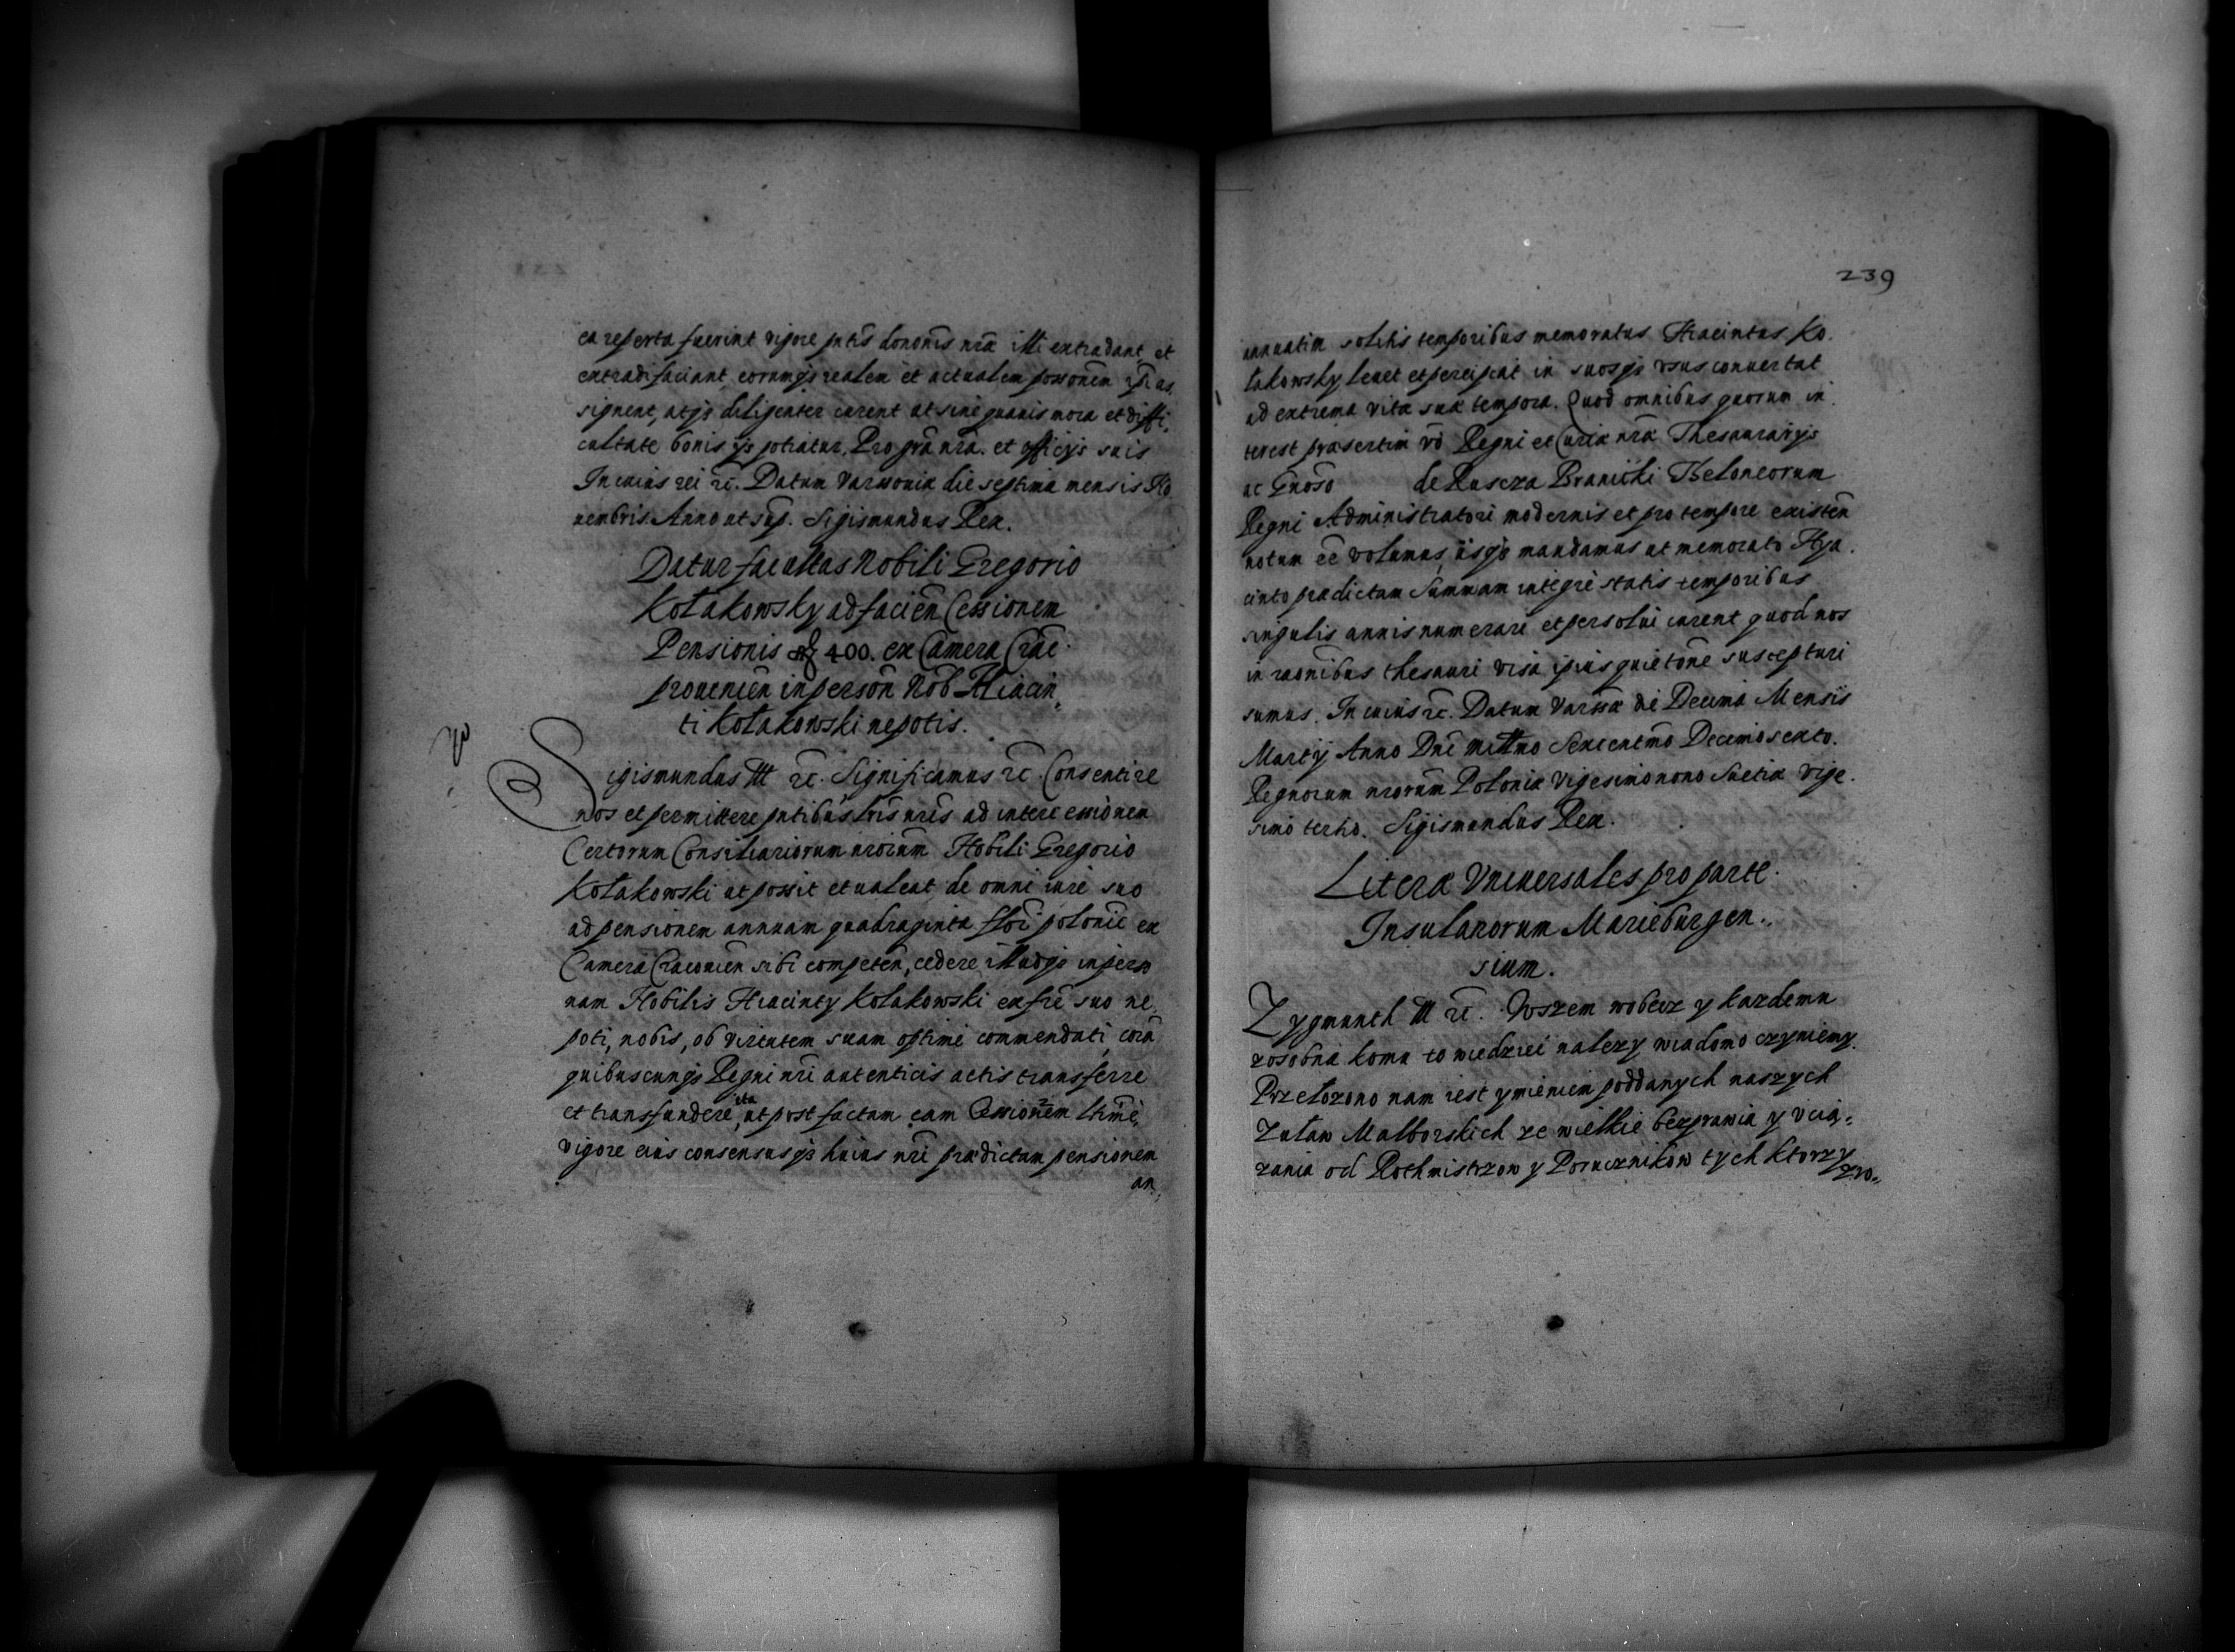 ea reperta fuerint vigore pntis dononis nrae illi extradant et
extradi faciant, eorumqz realem et actualem possonem ipi as,
signent, atqz diligenter curent ut sine quavis mora et diffi,
cultate bonis ijs potiatur. Pro gra nra. et officijs suis
In cuius rei rc. Datum Varsoviae die septima mensis No
uembris. Anno ut sup. Sigismundus Rex.
Datur facultas Nobili Gregorio
Kołakowsky ad facien Cessionem
Pensionis 400. ex Camera Crac
prouenien in person Nob Hiacin,
ti Kołakowski nepotis.
Sigismundus III rc. Significamus rc. Consentire
nos et permittere pntibus lris nris ad intercessionem
Certorum Consiliariorum nrorum Nobili Gregorio
Kołakowski ut possit et ualeat de omni iure suo
ad pensionem annuam quadraginta flor polonic ex
Camera Cracouien sibi competen, cedere illudqz in perso
nam Nobilis Hiacinty Kołakowski ex fre suo ne,
poti, nobis, ob virtutem suam optime commendati, cora
quibuscunqz Regni nri autenticis actis transferre
et transfundere, ita ut post factam eam Cessionem ltime,
vigore eius consensusqz huius nri praedictam pensionem
an,
239
annuatim solitis temporibus memoratus Hiacintus Ko.
łakowsky leuet et percipiat in suosqz vsus conuertat
ad extrema vitae suae tempora. Quod omnibus quorum in
terest praesertim vo Regni et Curiae nrae Thesaurarijs
ac Gnoso de Ruscza Branicki Theloneorum
Regni Administratori modernis et pro tempore existen
notum ee volumus, iisqz mandamus ut memorato Hya.
cinto praedictam Summam integre statis temporibus
singulis annis numerare et persolui curent quod nos
in raonibus thesauri visa ipius quietone suscepturi
sumus. In cuius rc. Datum Varssae die Decima Mensis
Martij Anno Dni Millmo Sexcentmo Decimosexto.
Regnorum nrorum Poloniae Vigesimonono Suetiae Vige.
simo tertio. Sigismundus Rex.
Literae Vniuersales pro parte
Insulanorum Marieburgen.
sium.
Zygmunth III rc. Wszem wobecz y kazdemu
zosobna komu to wiedziec nalezy wiadomo czyniemy.
Przełozono nam iest ymieniem poddanych naszych
Zuław Malborskich ze wielkie bezprawia y vcią,
zania od Rothmistrzow y Porucznikow tych ktorzy
zro,